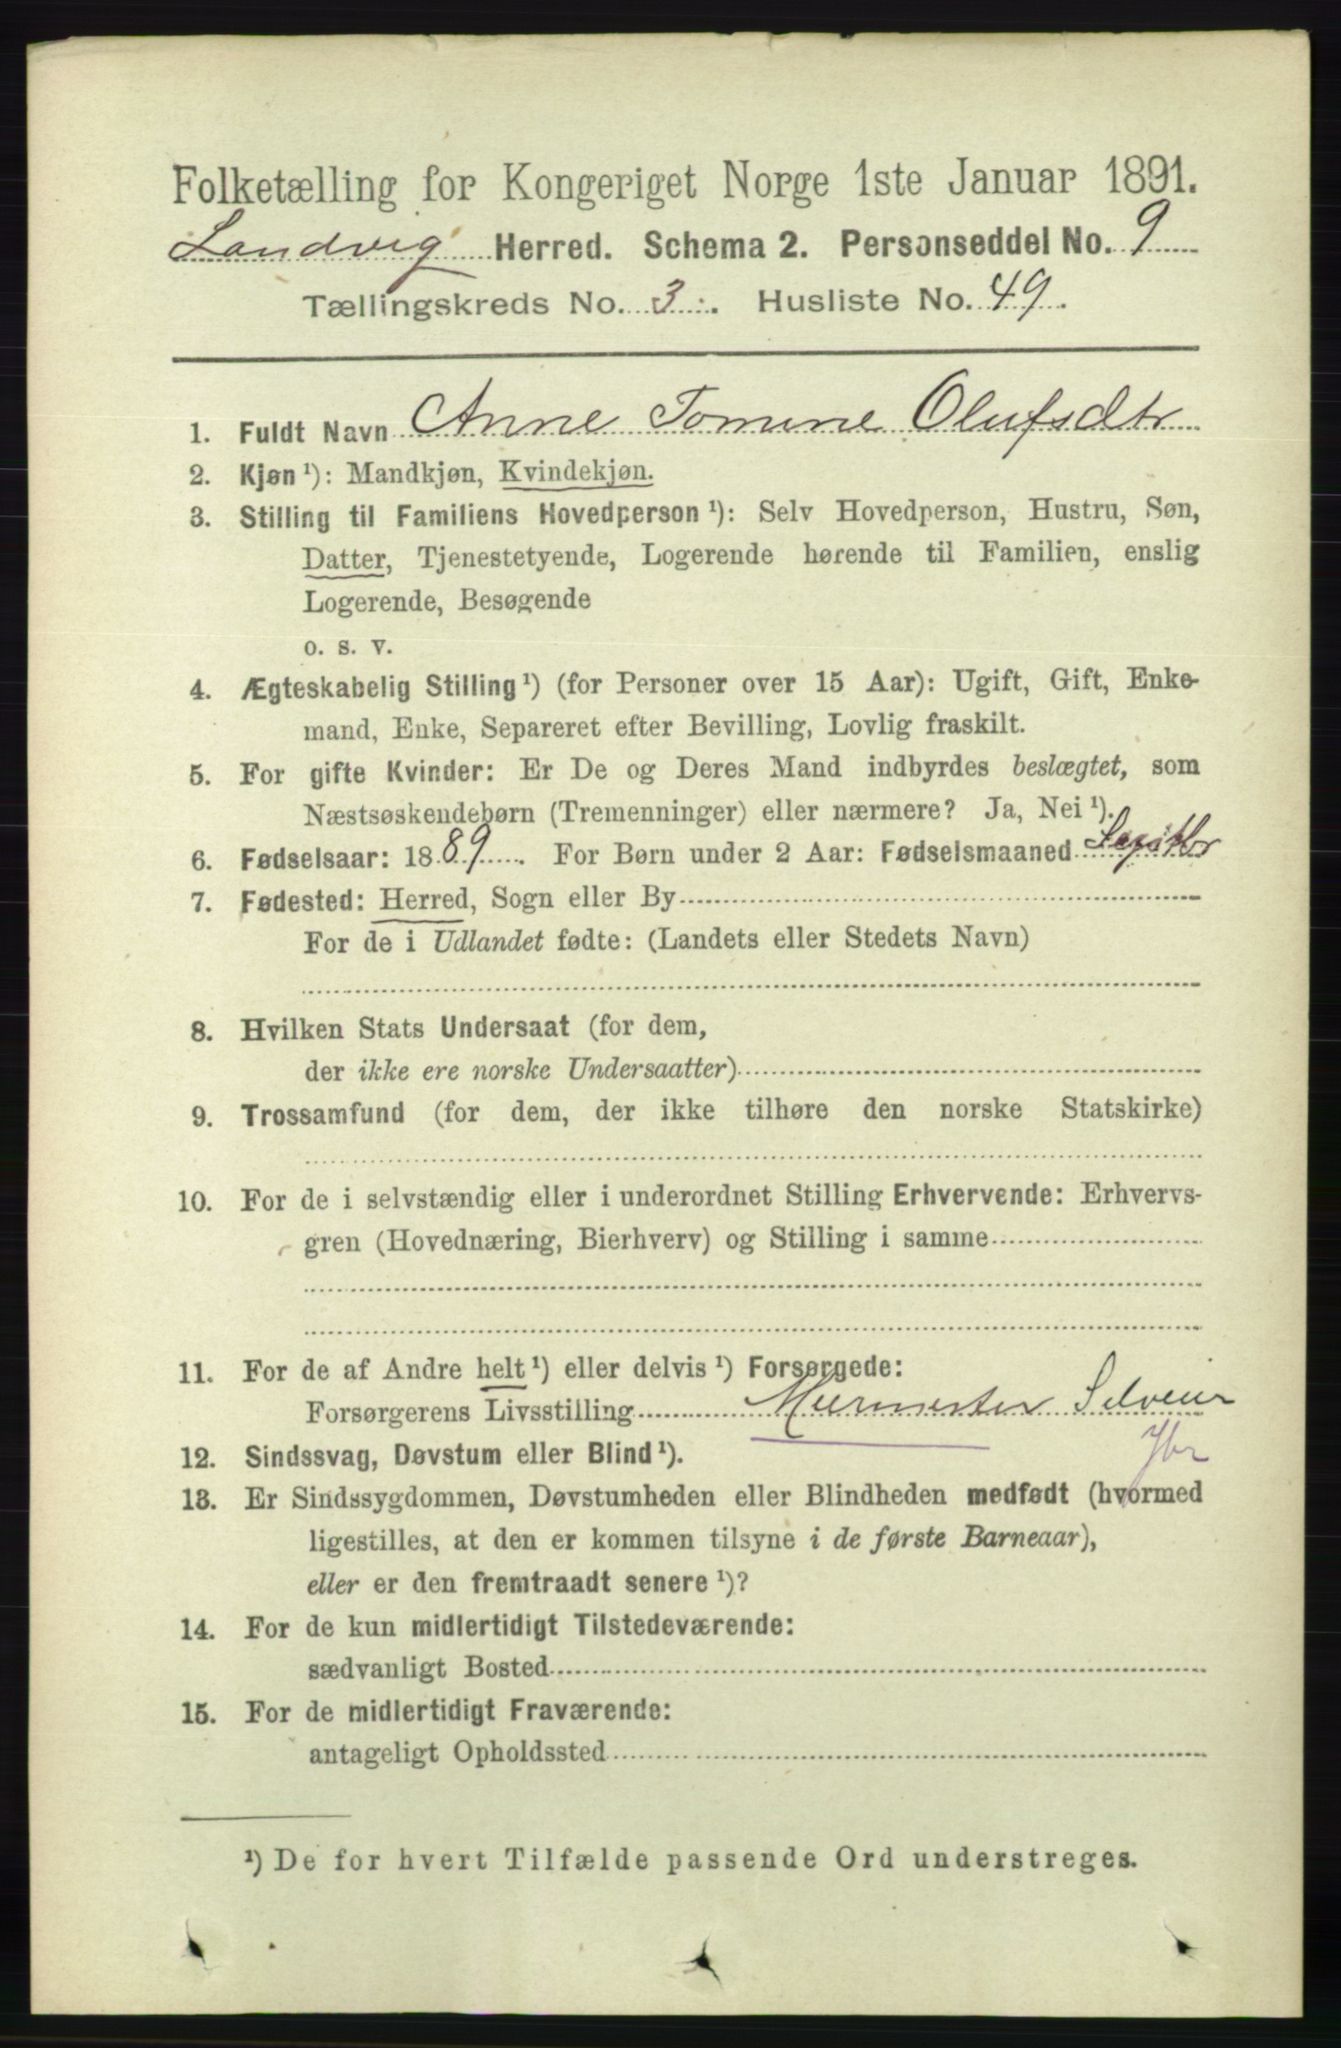 Folketælling for Kongeriget Norge 1ste Januar 1891.
Landvig Herred. Schema 2. Personseddel No. 9
Tællingskreds No. 3. Husliste No. 49.
1. Fuldt Navn Anne Tomine Olufsdtr
2. Kjøn ¹): Mandkjøn, Kvindekjøn.
3. Stilling til Familiens Hovedperson ¹): Selv Hovedperson, Hustru, Søn,
Datter, Tjenestetyende, Logerende hørende til Familien, enslig
Logerende, Besøgende
o. s. v.
4. Ægteskabelig Stilling ¹) (for Personer over 15 Aar): Ugift, Gift, Enke-
mand, Enke, Separeret efter Bevilling, Lovlig fraskilt.
5. For gifte Kvinder: Er De og Deres Mand indbyrdes beslægtet, som
Næstsøskendebørn (Tremenninger) eller nærmere? Ja, Nei ¹).
6. Fødselsaar: 1889. For Børn under 2 Aar: Fødselsmaaned Septbr
7. Fødested: Herred, Sogn eller By
For de i Udlandet fødte: (Landets eller Stedets Navn)
8. Hvilken Stats Undersaat (for dem,
der ikke ere norske Undersaatter)
9. Trossamfund (for dem, der ikke tilhøre den norske Statskirke)
10. For de i selvstændig eller i underordnet Stilling Erhvervende: Erhvervs-
gren (Hovednæring, Bierhverv) og Stilling i samme
11. For de af Andre helt ¹) eller delvis ¹) Forsørgede:
Forsørgerens Livsstilling Murmester Selveier
12. Sindssvag, Døvstum eller Blind ¹).
13. Er Sindssygdommen, Døvstumheden eller Blindheden medfødt (hvormed
ligestilles, at den er kommen tilsyne i de første Barneaar),
eller er den fremtraadt senere ¹)?
14. For de kun midlertidigt Tilstedeværende:
sædvanligt Bosted
15. For de midlertidigt Fraværende:
antageligt Opholdssted
¹) De for hvert Tilfælde passende Ord understreges.